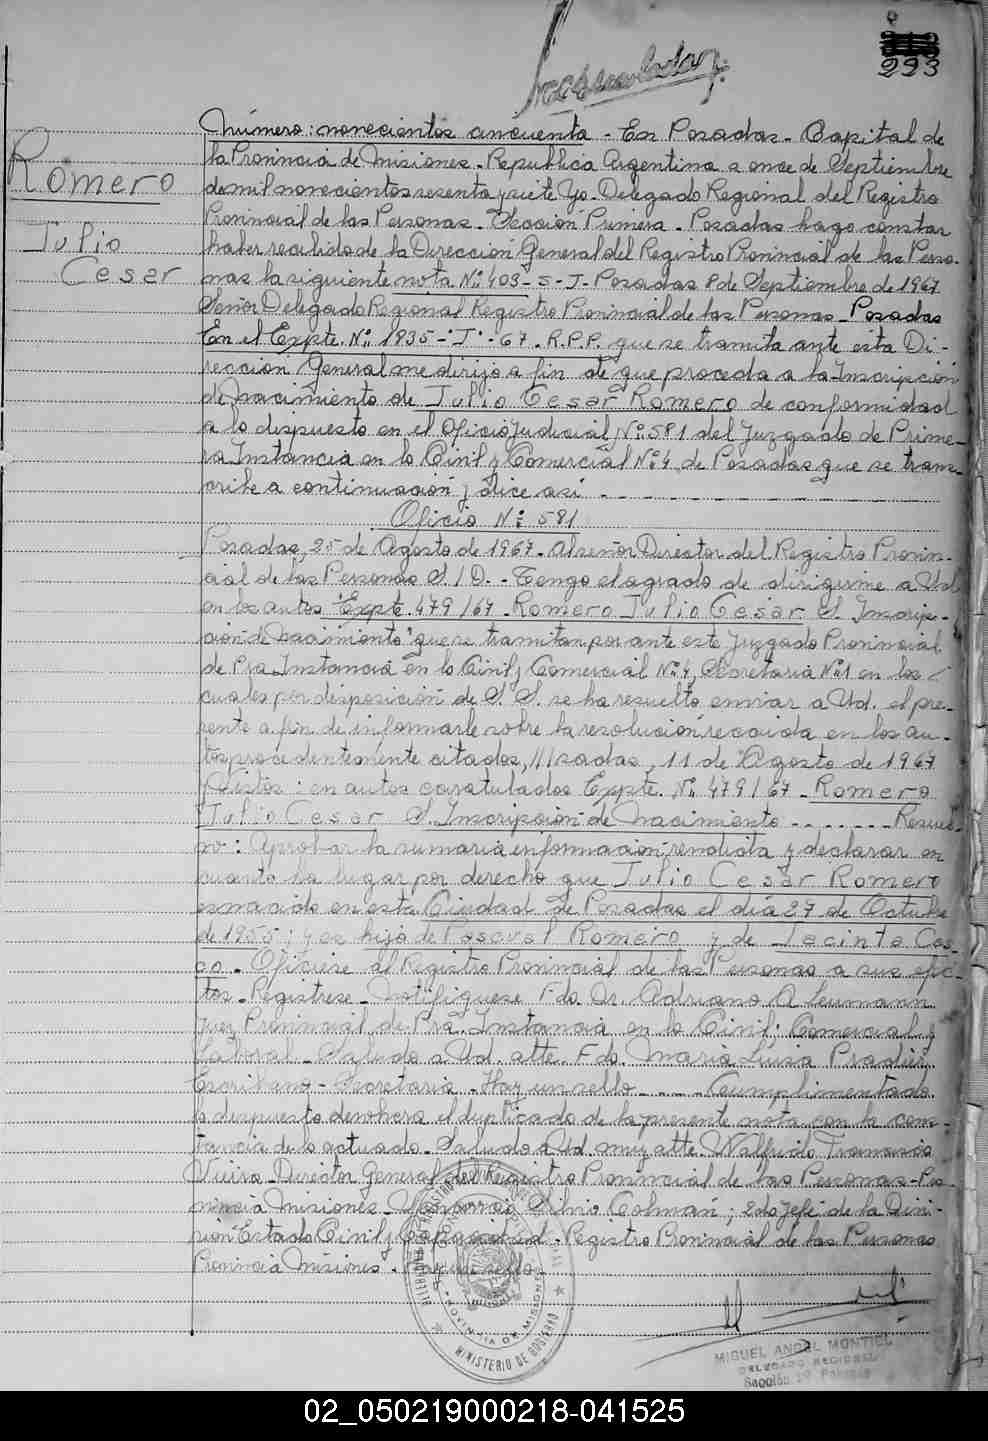 293
Número: novecientos cincuenta - En Posadas - Capital de
la Provincia de Misiones - Republica Argentina a once de Septiembre
Romero
de mil novecientos sesenta y siete Yo - Delegado Regional del Registro
Provincial de las Personas - Sección Primera - Posadas hago constar
Julio
haber recibido de la Dirección General del Registro Provincial de las Perso-
Cesar
nas la siguiente nota Nº: 403-S-J- Posadas 8 de Septiembre de 1967
Señor Delegado Regional Registro Provincial de las Personas - Posadas
En el Expte. Nº: 1835-"J"-67. R.P.P. que se tramita ante esta Di-
rección General me dirijo a fin de que proceda a la Inscripción
de Nacimiento de Julio Cesar Romero de conformidad
a lo dispuesto en el Oficio Judicial Nº: 581 del Juzgado de Prime-
ra Instancia en lo Civil y Comercial Nº 4 de Posadas que se trans-
cribe a continuación y dice así
Oficio Nº: 581
Posadas, 25 de Agosto de 1967 - Al señor Director del Registro Provin-
cial de las Personas S./D. - Tengo el agrado de dirigirme a Ud.
en los autos "Expte. 479/67 - Romero Julio Cesar S. Inscrip-
ción de Nacimiento" que se tramitan por ante este Juzgado Provincial
de Pra Instancia en lo Civil y Comercial Nº 4, Secretaria Nº 1 en los
cuales por disposición de S. S. se ha resuelto enviar a Ud. el pre-
sente a fin de informarle sobre la resolución recaida en los au-
tos precedentemente citados, ///sadas, 11 de Agosto de 1967
Vistos: en autos caratulados Expte. Nº 479/67 - Romero
Julio Cesar S. Inscripción de Nacimiento - - - - - - - Resuel-
vo: Aprobar la sumaria información rendida y declarar en
cuanto ha lugar por derecho que Julio Cesar Romero
es nacido en esta Ciudad de Posadas el día 27 de Octubre
de 1955; y es hijo de Pascual Romero y de Jacinta Cas-
co - Ofíciese al Registro Provincial de las Personas a sus efec-
tos - Registrese - Notifíquese Fdo. Dr. Adriano A Leumann
Juez Provincial de Pra. Instancia en lo Civil; Comercial y
Laboral - Saludo a Ud. atte. Fdo. Maria Luisa Pradier
Escribana - Secretaria - Hay un sello - - - - - Cumplimentado
lo dispuesto devolverá el duplicado de la presente nota con la cons-
tancia de lo actuado - Saludo a Ud. muy atte. Walfrido Francisco
Vieira - Director General del Registro Provincial de las Personas - Pro-
vincia Misiones - Silvio Colman; 2do Jefe de la Divi-
sión Estado Civil y Capacidad - Registro Provincial de las Personas
Provincia Misiones - Hay un sello
PROVINCIA DE MISIONES
MINISTERIO DE GOBIERNO
MIGUEL ANGEL MONTIEL
DELEGADO REGIONAL
Sección 1º Posadas
02_050219000218-041525